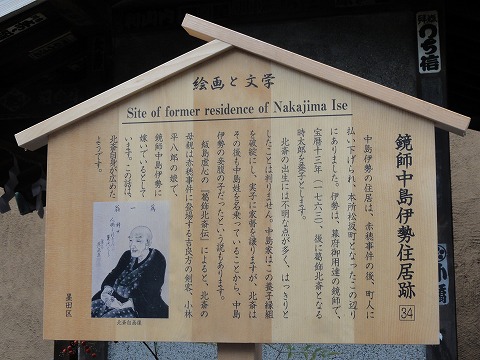 絵画と文学
Site of former residence of Nakajima Ise
鏡師中島伊勢住居跡
34
中島伊勢の住居は、赤穂事件の後、町人に
払い下げられ、本所松坂町となったこの辺り
にありました。伊勢は、幕府御用達の鏡師で、
宝暦十三年（一七六三）、後に葛飾北斎となる
時太郎を養子とします。
北斎の出生には不明な点が多く、はっきりと
したことは判りません。中島家はこの養子縁組
を破綻にし、実子に家督を譲りますが、北斎は
その後も中島姓を名乗っていることから、中島
伊勢の妾腹の子だったという説もあります。
飯島虚心の『葛飾北斎伝』によると、北斎の
母親は赤穂事件に登場する吉良方の剣客、小林
平八郎の娘で、
鏡師中島伊勢に
嫁いでいるとして
います。この話は、
北斎自身が広めた
ようです。
北斎自画像
墨田区
うち信
小橋